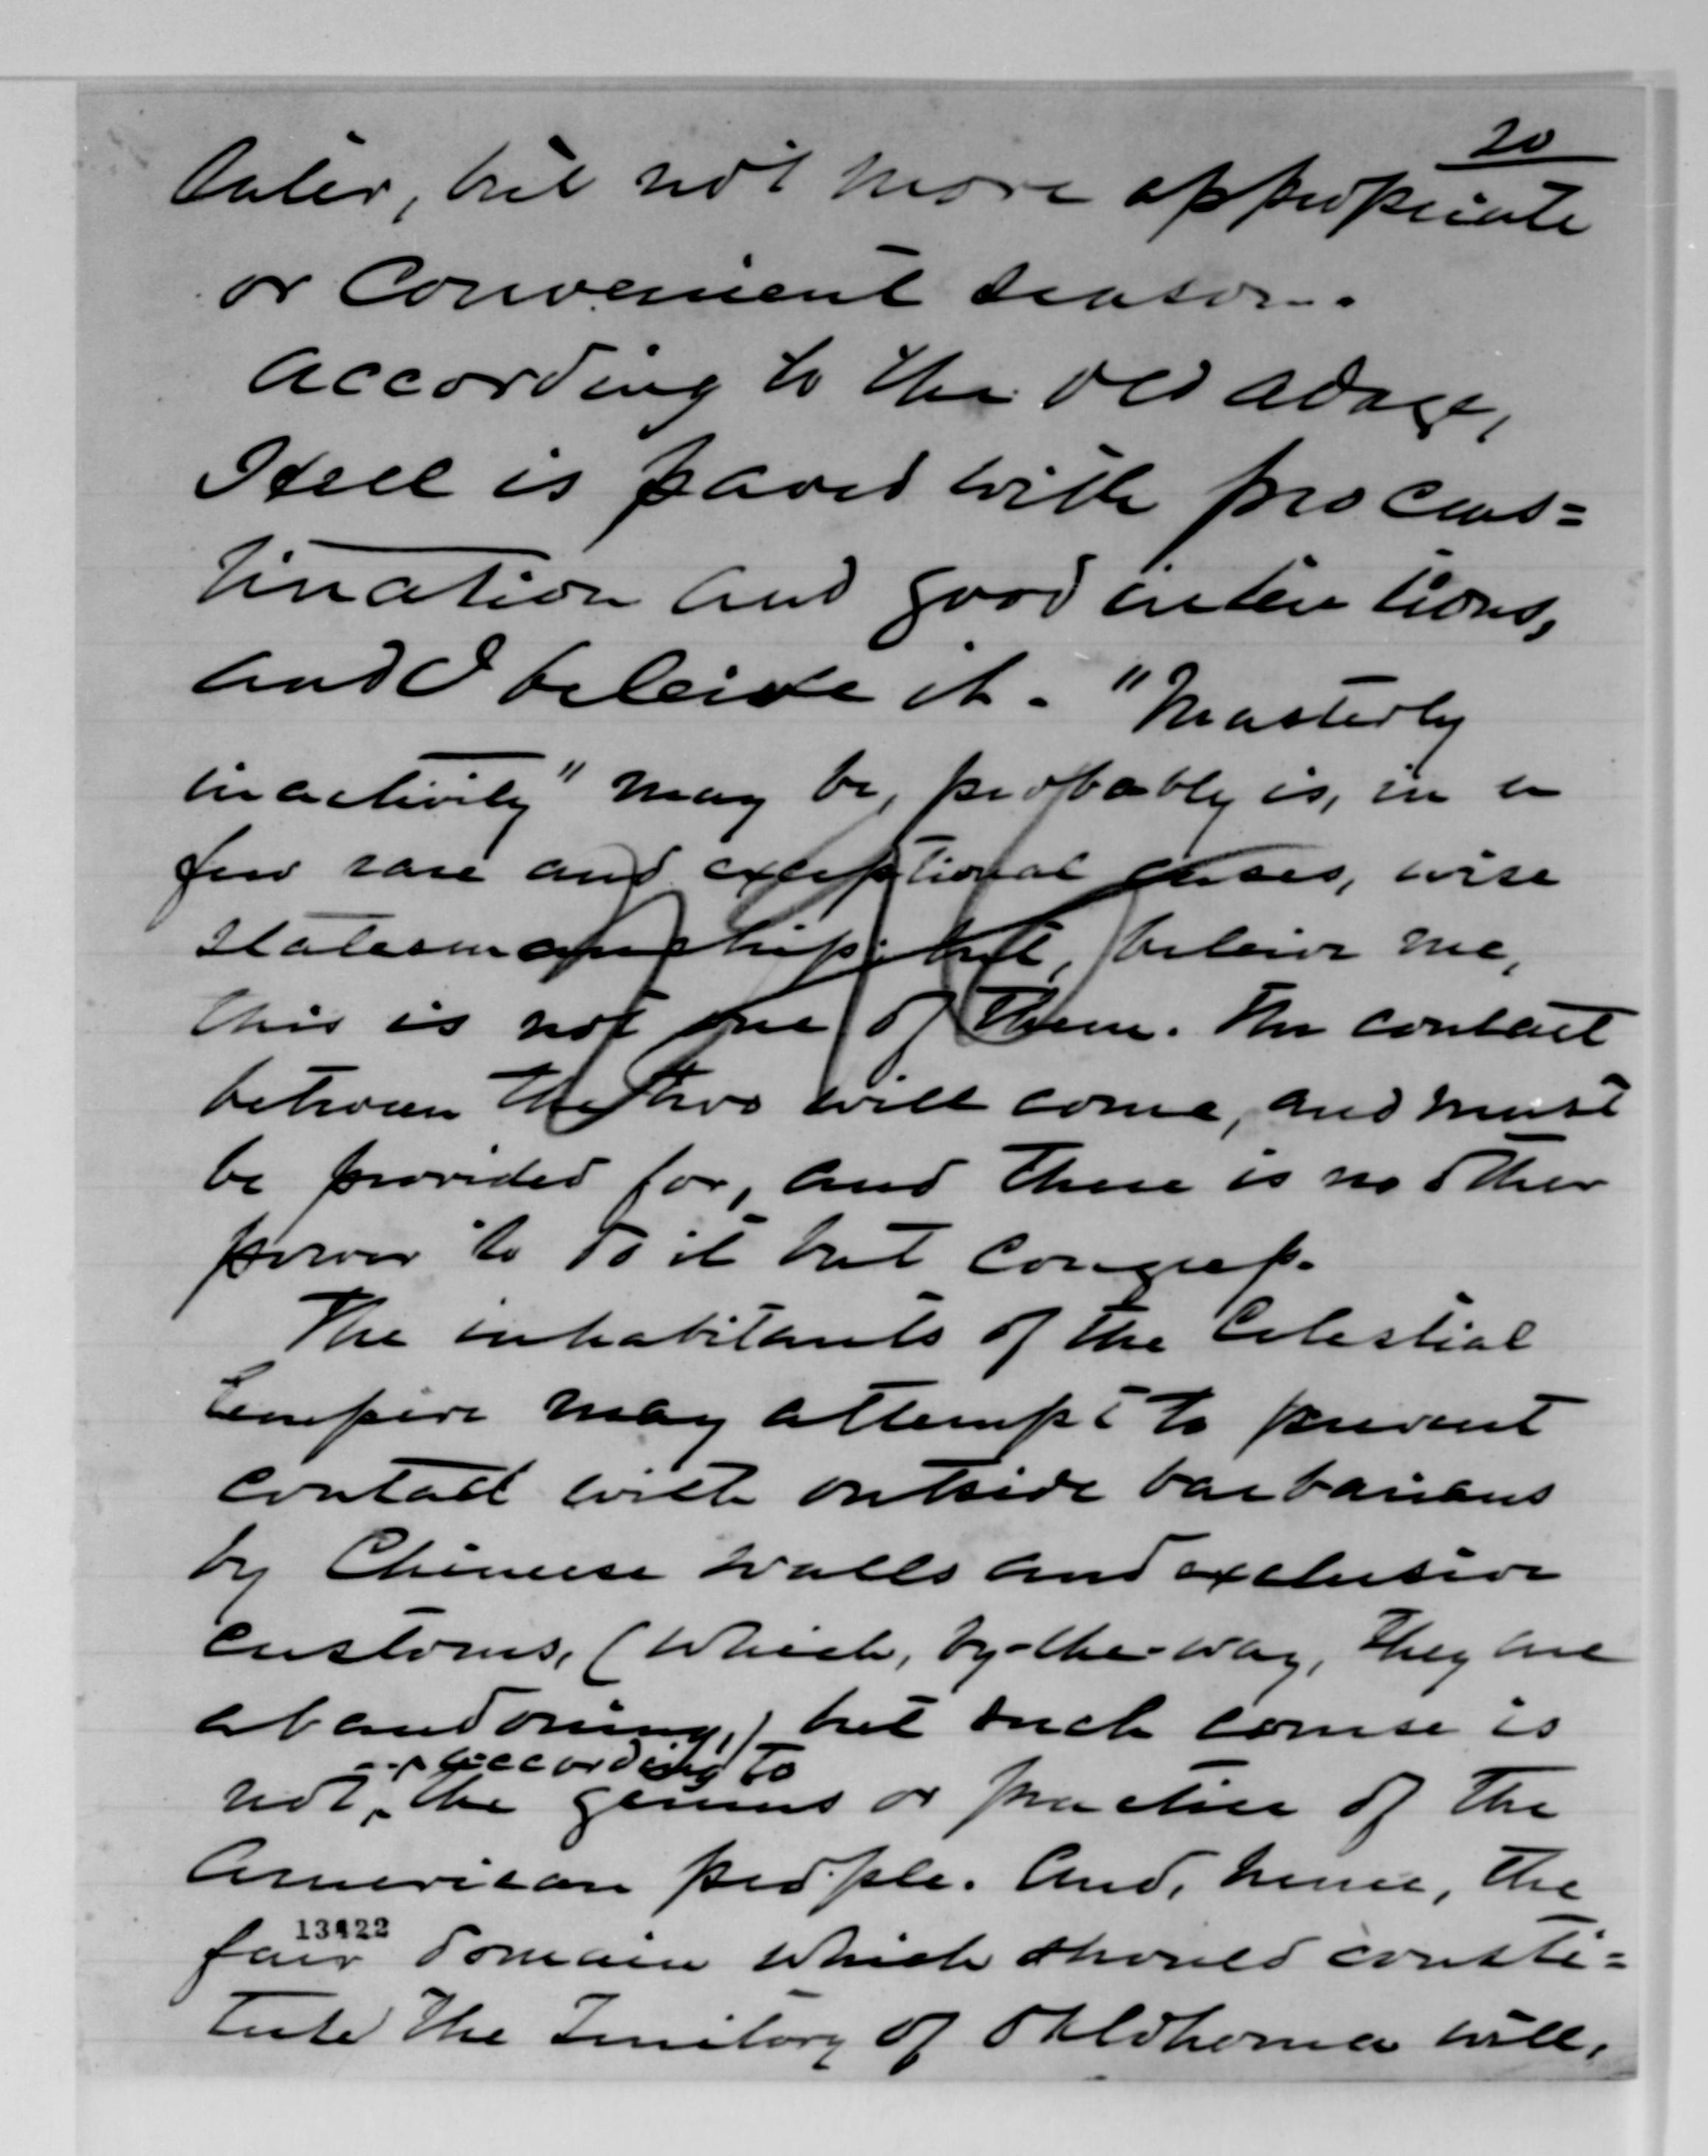 20
later, but not more appropriate
or convenient season.
According to the old adage,
Hell is paved with procras=
tination and good intentions,
and I beleive it. "Masterly
inactivity" may be, probably is, in a
few rare and exceptional cases, wise
statesmanship; but, beleive me,
this is not one of them. The contact
between the two will come, and must
be provided for, and there is no other
power to do it but Congress.
The inhabitants of the Celestial
Empire may attempt to prevent
contact with outside barbarians
by Chineese walls and exclusive
customs, (which, by-the-way, they are
abandoning,) but such course is
according to
not the genius or practice of the
American people. And, hence, the
13422
fair domain which should consti=
tute the Territory of Oklahoma will,